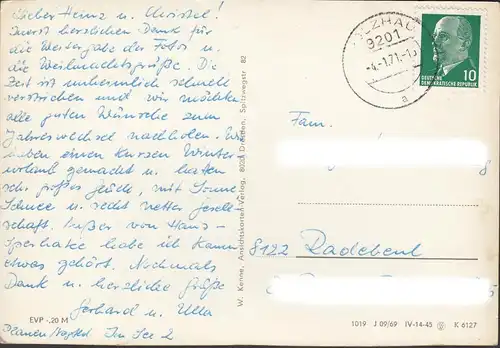 Lieber Heinz u. Christel!
Zuerst herzlichen Dank für
die Weitergabe der Fotos u.
die Weihnachtsgrüße. Die
Zeit ist unheimlich schnell
verstrichen und wir möchten
alle guten Wünsche zum
Jahreswechsel nachholen. Wir
haben einen kurzen Winter-
urlaub gemacht u. hatten
sehr großes Glück, mit Sonne
Schnee u. recht netter Gesell-
schaft. Außer von Hans-
habe ich kaum
etwas gehört. Nochmals
Dank u. herzliche Grüße
Gerhard u. Ulla
EVP -.20 M
Plauen/Vogtld
W. Kenne, Ansichtskarten-Verlag, 8028 Dresden, Spitzwegstr 82
9201
-4.-1.71.-10
a
10
DEUTSCHE
DEMOKRATISCHE REPUBLIK
Fam.
8122 Radebeul
1019 J 09/69 IV-14-45 K 6127